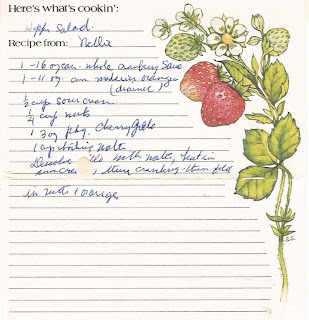 Here's what's cookin':
Salad
Recipe from: Nellie
1 - 16 oz can whole cranberry Sauce
1 - 11 oz. can mandarin oranges
(drained)
1/2 cup sour cream
1/4 cup nuts
1 3 oz pkg. Cherry Jello
1 cup boiling water
Dissolve with water, beat in
sour cream, then cranberry then fold
in nuts & oranges